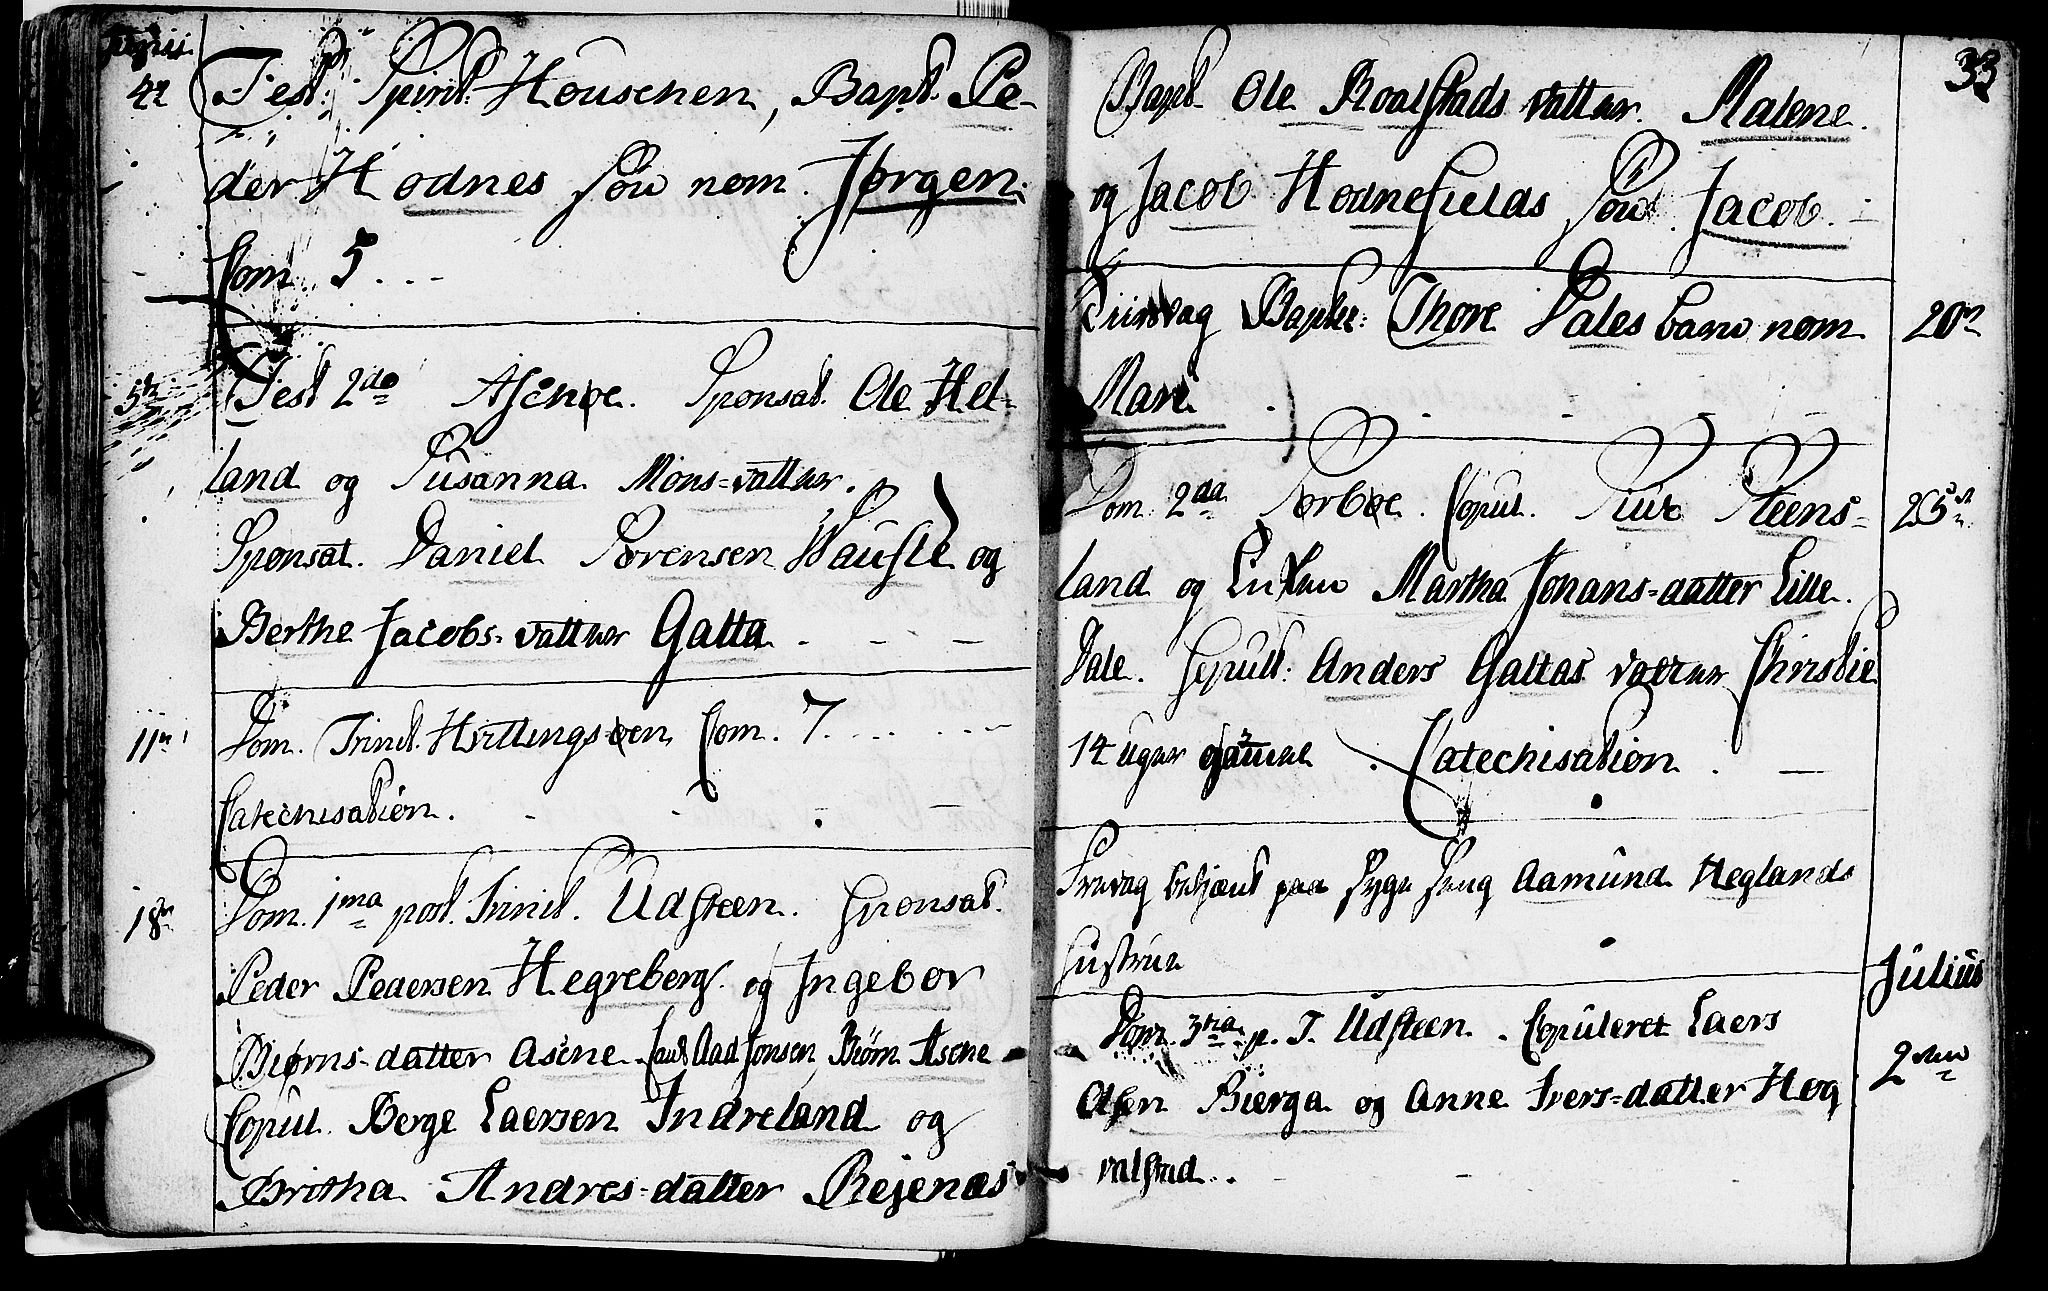 Junii
4de Fest. Spirit. Houschen, Bapt. Pe-
der Hodnes Søn nom. Jørgen.
Com. 5...
5te Fest 2do Aschøe. Sponsat. Ole Het-
land og Susanna Mons-datter.
Sponsat. Daniel Sørensen Haustte og
Berthe Jacobs-datter Galta.
11te Dom. Trinit. Hvittingsøen Com. 7...
Catechisation.
18de Dom. 1ma post. Trinit. Udsteen. Sponsat.
Peder Pedersen Hegreberg og Ingebor
Biørns-datter Asene. Caut. Aad Jonsen, Biørn Asene
Copul. Berge Laersen Indreland og
Britha Andres-datter Rejenæs
33
Bapt. Ole Roalstads datter Malene.
og Jacob Hodnefields Søn Jacob.
Tiirsdag Bapte: Thore Dales barn nom 20de
Mari.
Dom. 2da Sørbøe. Copul. Siur Steens- 25de
land og Enken Martha Johans-datter Lille
Dale. Sepult: Anders Galtas datter Christie
14 uger gamel. Catechisation.
Fredag betjent paa Syge Seng Aamund Heglands
Hustrue
Julius
Dom. 3tia p. T. Udsteen. Copuleret Laers
2den
Olsen Bierga og Anne Ivers-datter Hog
valstad..